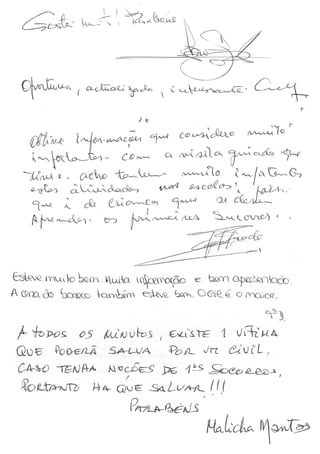 Gostei muito! Parabéns
Oportuna, actualizada, interessante.
obtive informações que considero muito
importantes. com a visita guiada que
tive. acho tambem muito importantes
estas atividades nas escolas, pois
que é de criança que se devem
Aprender os primeiros Socorros.
Esteve muito bem. Muita informação e bem apresentado.
A cena do boneco também esteve bem. O GIR é o maior.
9º J
A TODOS OS MINUTOS, EXISTE 1 VÍTIMA
QUE PODERÁ SALVA POR UM CIVIL,
CASO TENHA NOÇÕES DE 1ºS SOCORROS,
PORTANTO HÁ QUE SALVAR!!!
PARABÉNS
Malicha Mantos